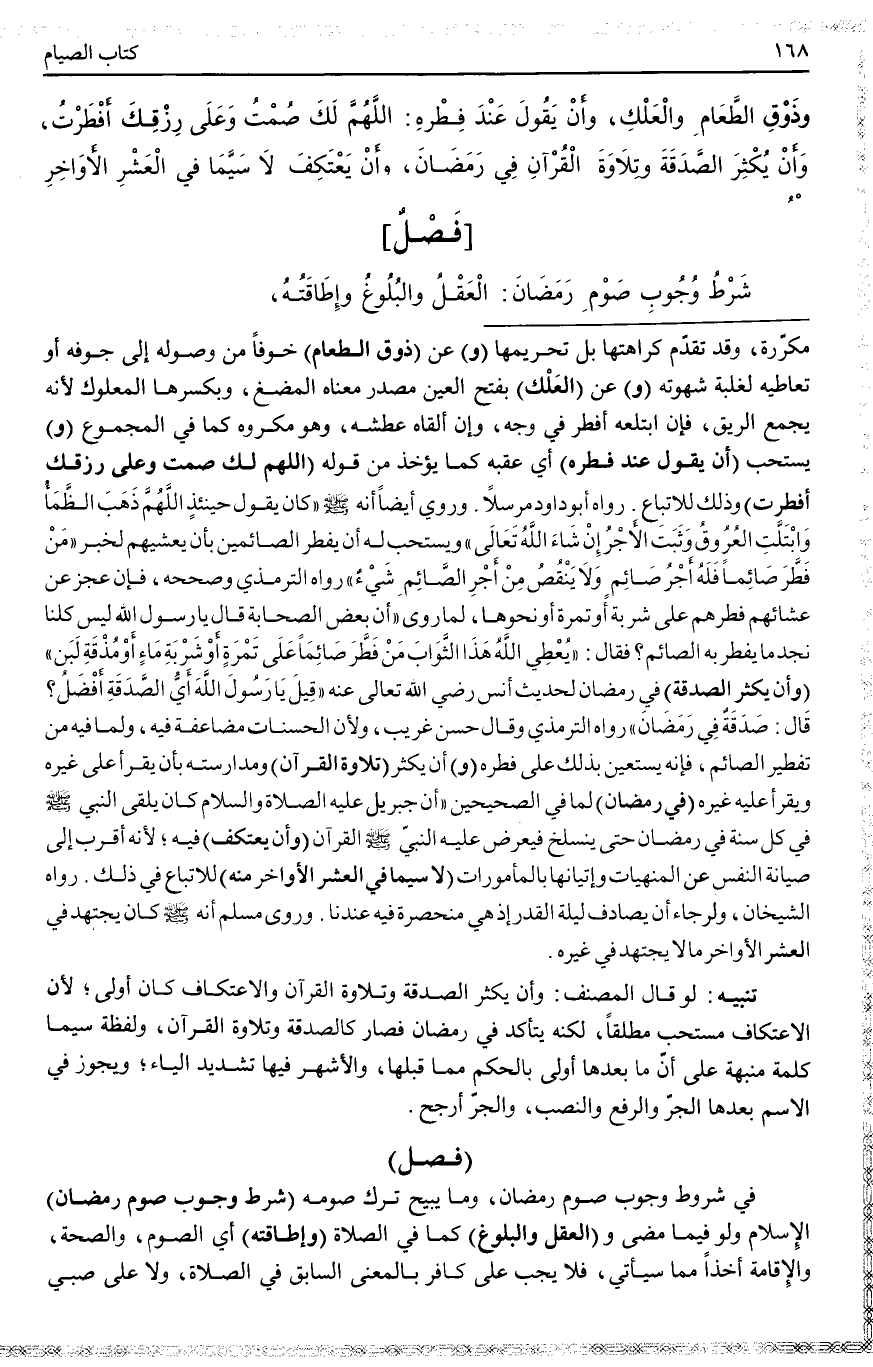 ١٦٨
كتاب الصيام
وذَوْقِ الطَّعَامِ والْعَلْكِ، وأَنْ يَقُولَ عَنْدَ فِطْرِهِ: اللَّهُمَّ لَكَ صُمْتُ وَعَلَى رِزْقِكَ أَفْطَرْتُ،
وَأَنْ يُكْثِرَ الصَّدَقَةَ وتِلَاوَةَ الْقُرْآنِ فِي رَمَضَانَ، وأَنْ يَعْتَكِفَ لَا سَيَّمَا في الْعَشْرِ الأَوَاخِرِ
[فَصْلٌ]
شَرْطُ وُجُوبِ صَوْمِ رَمَضَانَ: الْعَقْلُ والْبُلُوغُ وإِطَاقَتُهُ،
مكرّرة، وقد تقدّم كراهتها بل تحريمها (و) عن (ذوق الطعام) خوفاً من وصوله إلى جوفه أو
تعاطيه لغلبة شهوته (و) عن (العَلْك) بفتح العين مصدر معناه المضغ، وبكسرها المعلوك لأنه
يجمع الريق، فإن ابتلعه أفطر في وجه، وإن ألقاه عطشه، وهو مكروه كما في المجموع (و)
يستحب (أن يقول عند فطره) أي عقبه كما يؤخذ من قوله (اللهم لك صمت وعلى رزقك
أفطرت) وذلك للاتباع. رواه أبو داود مرسلاً. وروي أيضاً أنه ﷺ «كان يقول حينئذٍ اللَّهُمَّ ذَهَبَ الظَّمَأُ
وَابْتَلَّتِ العُرُوقُ وَثَبَتَ الأَجْرُ إِنْ شَاءَ اللَّهُ تَعَالَى» ويستحب له أن يفطر الصائمين بأن يعشيهم لخبر «مَنْ
فَطَّرَ صَائِماً فَلَهُ أَجْرُ صَائِمٍ وَلَا يَنْقُصُ مِنْ أَجْرِ الصَّائِمِ شَيْءٌ» رواه الترمذي وصححه، فإن عجز عن
عشائهم فطرهم على شربة أو تمرة أو نحوها، لما روى «أن بعض الصحابة قال يا رسول الله ليس كلنا
نجد ما يفطر به الصائم؟ فقال: «يُعْطِي اللَّهُ هَذَا الثَّوَابَ مَنْ فَطَّرَ صَائِمَاً عَلَى تَمْرَةٍ أَوْ شَرْبَةِ مَاءٍ أَوْ مُذْقَةِ لَبَنٍ»
(وأن يكثر الصدقة) في رمضان لحديث أنس رضي الله تعالى عنه «قِيلَ يَا رَسُولَ اللَّهَ أَيُّ الصَّدَقَةِ أَفْضَلُ؟
قَالَ: صَدَقَةٌ فِي رَمَضَانَ» رواه الترمذي وقال حسن غريب، ولأن الحسنات مضاعفة فيه، ولما فيه من
تفطير الصائم، فإنه يستعين بذلك على فطره (و) أن يكثر (تلاوة القرآن) ومدارسته بأن يقرأ على غيره
ويقرأ عليه غيره (في رمضان) لما في الصحيحين «أن جبريل عليه الصلاة والسلام كان يلقى النبي ﷺ
في كل سنة في رمضان حتى ينسلخ فيعرض عليه النبيّ ﷺ القرآن (وأن يعتكف) فيه؛ لأنه أقرب إلى
صيانة النفس عن المنهيات وإتيانها بالمأمورات (لا سيما في العشر الأواخر منه) للاتباع في ذلك. رواه
الشيخان، ولرجاء أن يصادف ليلة القدر إذ هي منحصرة فيه عندنا. وروى مسلم أنه ﷺ كان يجتهد في
العشر الأواخر ما لا يجتهد في غيره.
تنبيه: لو قال المصنف: وأن يكثر الصدقة وتلاوة القرآن والاعتكاف كان أولى؛ لأن
الاعتكاف مستحب مطلقاً، لكنه يتأكد في رمضان فصار كالصدقة وتلاوة القرآن، ولفظة سيما
كلمة منبهة على أنّ ما بعدها أولى بالحكم مما قبلها، والأشهر فيها تشديد الياء؛ ويجوز في
الاسم بعدها الجرّ والرفع والنصب، والجرّ أرجح.
(فصل)
في شروط وجوب صوم رمضان، وما يبيح ترك صومه (شرط وجوب صوم رمضان)
الإسلام ولو فيما مضى و (العقل والبلوغ) كما في الصلاة (وإطاقته) أي الصوم، والصحة،
والإقامة أخذاً مما سيأتي، فلا يجب على كافر بالمعنى السابق في الصلاة، ولا على صبي